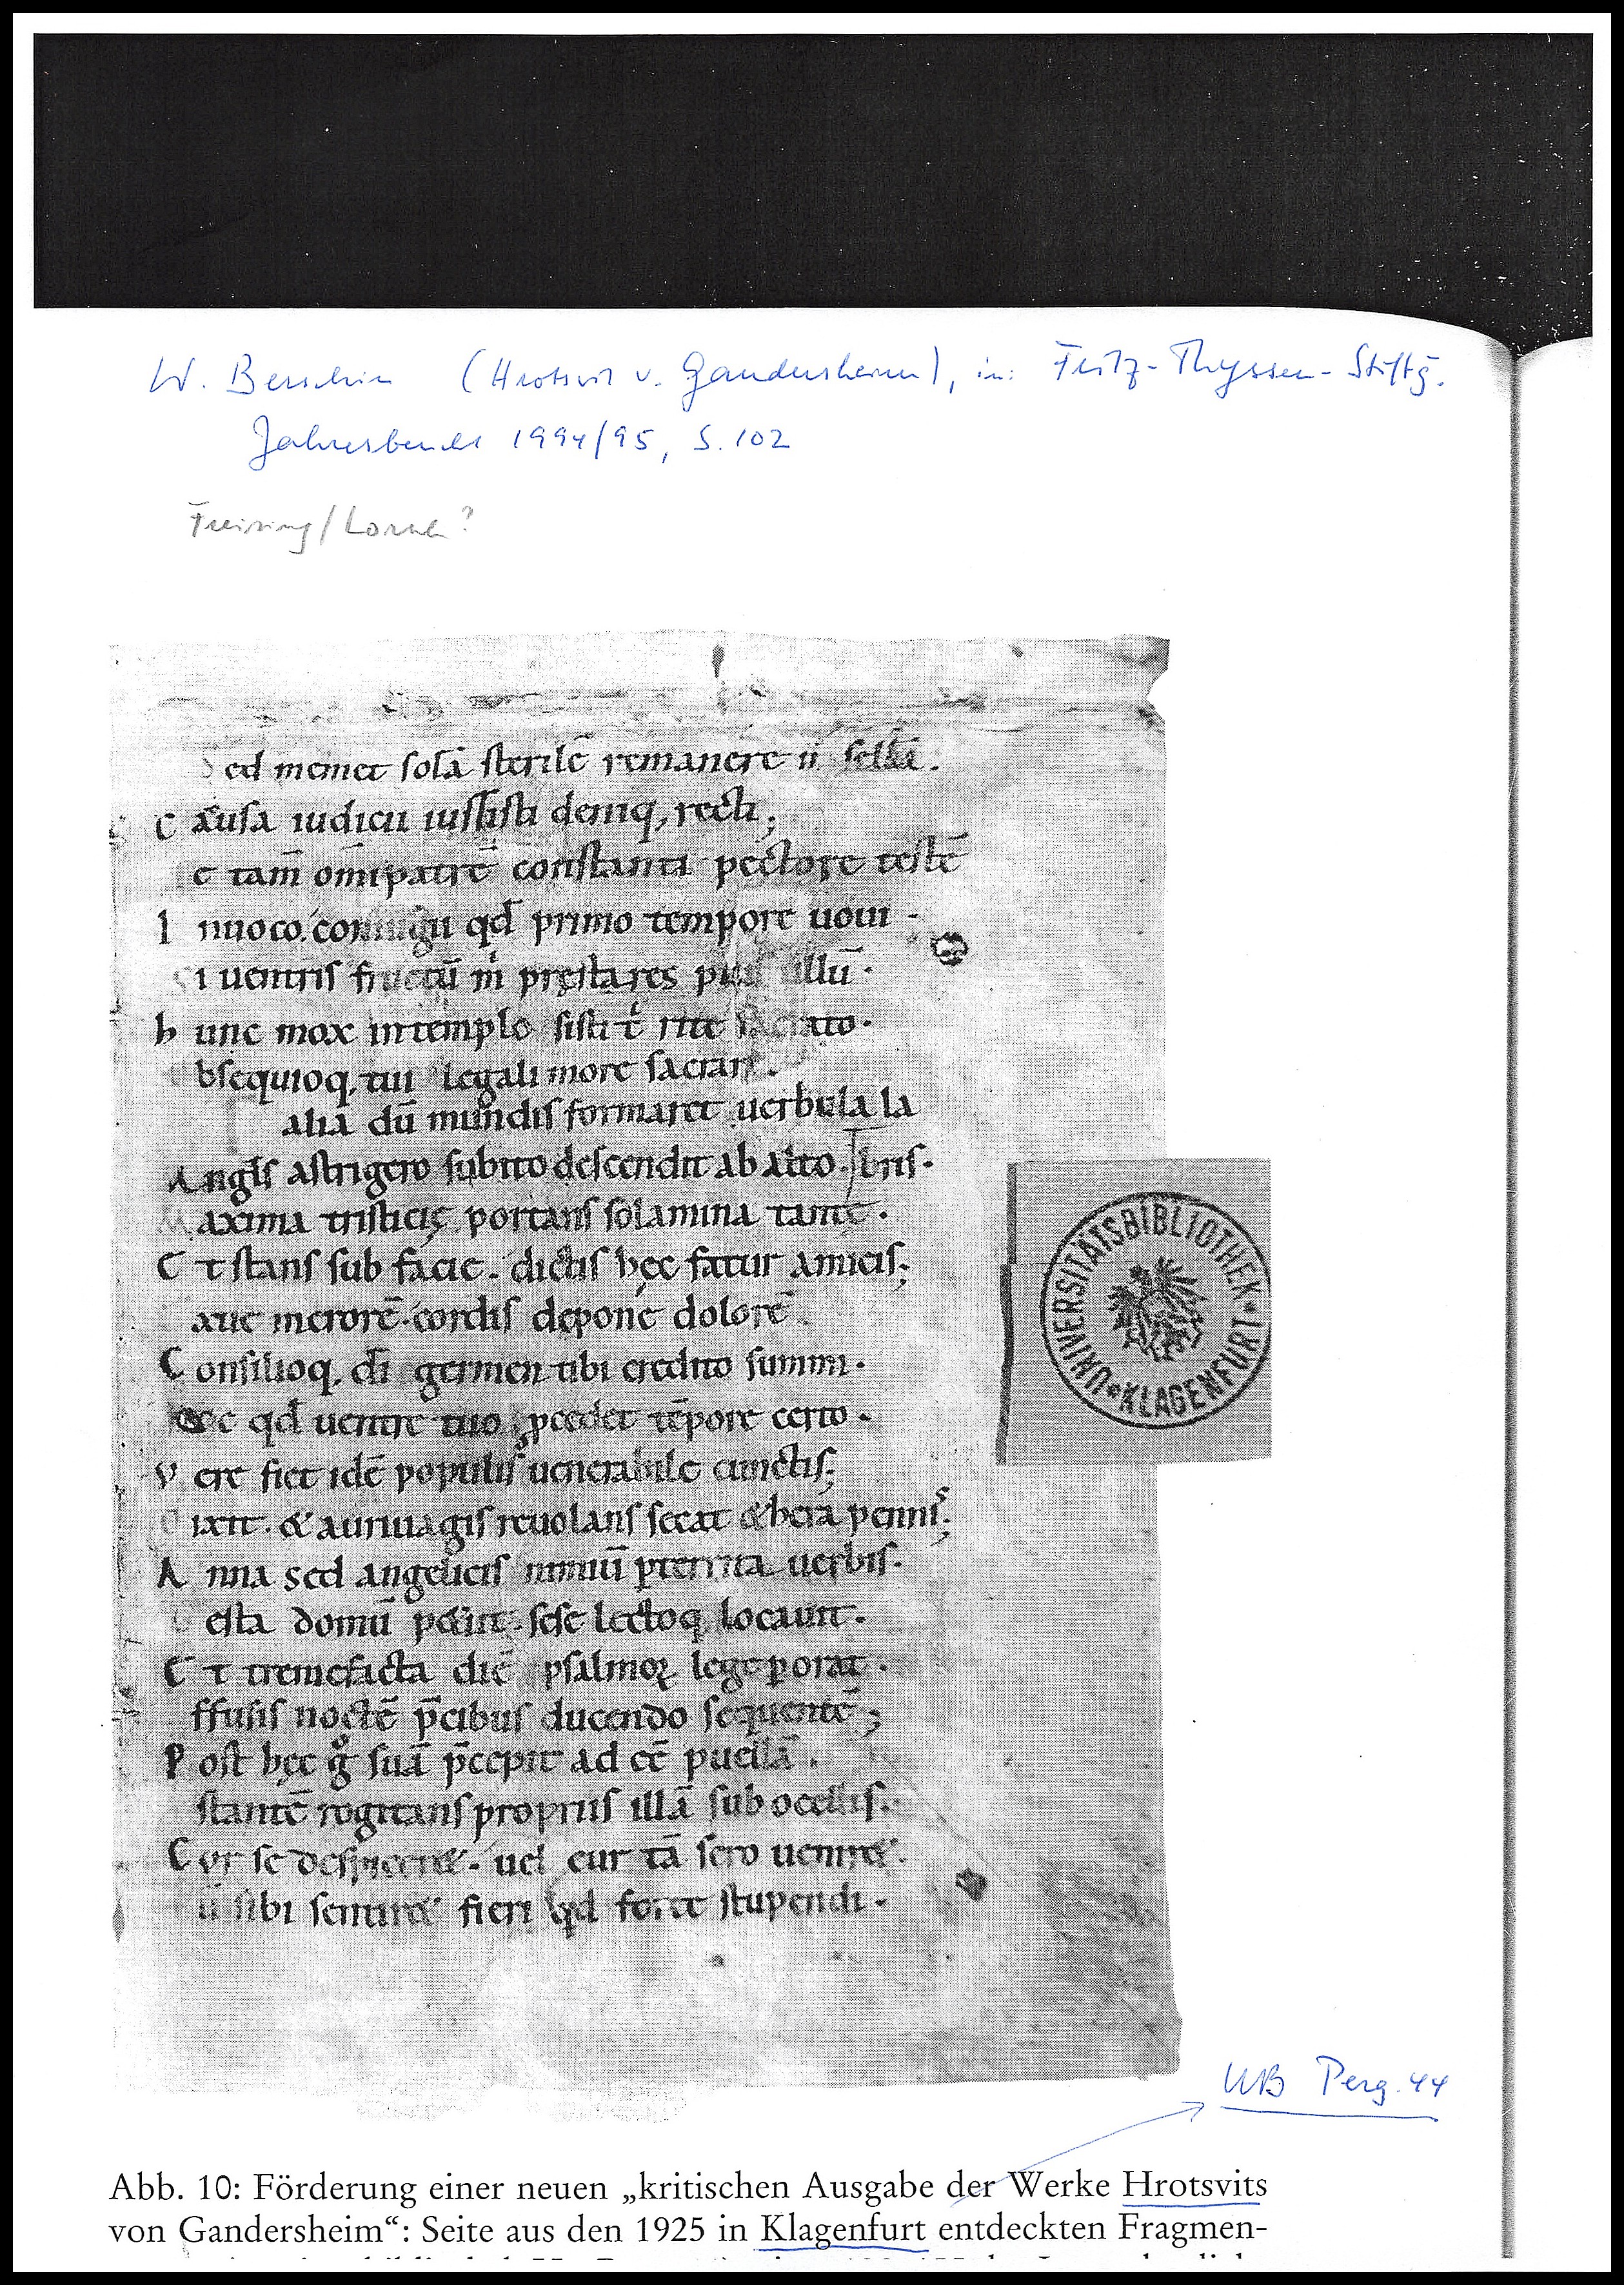 W. Berschin (Hrotsvit v. Gandersheim), in: Fritz-Thyssen-Stiftg.
Jahresbericht 1994/95, S. 102
Freising/Lorsch?
ed memet solā sterilē remanere
C ausa iudicii iussisti demiq, recti;
c tam̄ om̄ipatrē constanti pectore testē
I nuoco. coniugii qd̄ primo tempore uoui
i uentris fructū m̍ pręstares illū.
h unc mox in templo sisti rite
bsequioq, tui legali more sacrari.
alia dū mundis formaret uerbula la
A ngl̄s astrigero subito descendit ab alto. bris.
M axima tristicię portans solamina tantę.
E t stans sub facie. dictis hęc fatur amicis;
aue merorē. cordis depone dolorē
C onsilioq, dī germen tibi credito summi.
qd̄ uentre tuo ꝓcedet tēpore certo.
V ere fiet idē populis uenerabile cunctis;
D ixit. & auriuagis reuolans secat &hera pennis;
A nna sed angelicis nimiū ꝑterrita uerbis.
esta domū petiit. sese lectoq, locauit.
E t tremefacta diē psalmoꝝ lege ꝑorat.
ffusis noctē p̄cibus ducendo sequentē;
P ost hęc gͦ suā p̄cepit ad eē puellā.
stantē rogitans propriis illā sub ocellis.
C ur se despiceret. uel cur tā sero ueniret.
sibi sentiret fieri qd forte stupendi.
UNIVERSITÄTSBIBLIOTHEK * KLAGENFURT *
UB Perg. 44
Abb. 10: Förderung einer neuen „kritischen Ausgabe der Werke Hrotsvits
von Gandersheim“: Seite aus den 1925 in Klagenfurt entdeckten Fragmen-